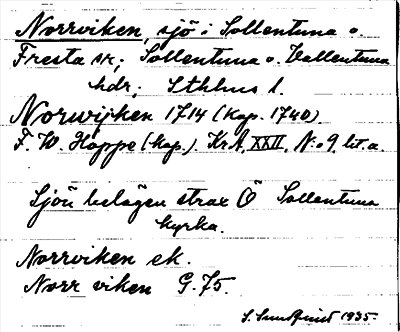 Norrviken, sjö i Sollentuna o.
Fresta sr; Sollentuna o. Vallentuna
hdr; Sthlms l.
Norwijken 1714 (kop. 1740)
F. W. Hoppe (kop.). KrA, XXII, N:o 9 lit. a.
Sjön belägen strax Ö Sollentuna
kyrka.
Norrviken ek.
Norr viken G. 75.
S. Sundquist 1935.